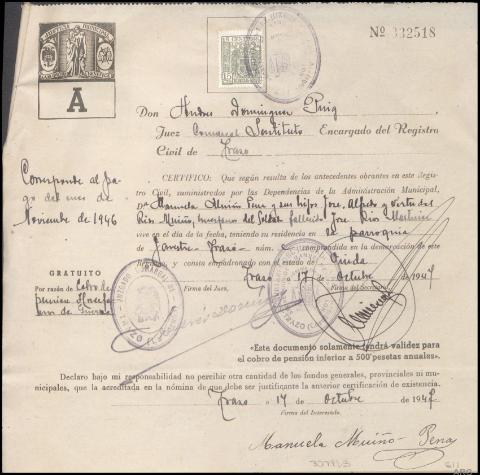 JUSTICIA MUNICIPAL
A
Nº 332518
Don Andres Dominguez Puig
Juez Comarcal Sustituto Encargado del Registro
Civil de Trazo
CERTIFICO: Que según resulta de los antecedentes obrantes en este Registro
Civil, suministrados por las Dependencias de la Administración Municipal,
Dª Manuela Muiño Pena y sus hijos Jose, Alfredo y Virtudes
Rios Muiño, del Soldado fallecido Jose Rios
vive en el día de la fecha, teniendo su residencia en la parroquia
de Trazo núm. comprendida en la demarcación de este
Registro, y consta empadronado con el estado de Viuda
Trazo a 17 de Octubre de 1947
Corresponde al pa-
go del mes de
Noviembre de 1946
GRATUITO
Por razón de Cobro de
pension
Firma del Juez,
Firma del Secretario
«Este documento solamente tendrá validez para
el cobro de pensión inferior a 500 pesetas anuales».
Declaro bajo mi responsabilidad no percibir otra cantidad de los fondos generales, provinciales ni
municipales, que la acreditada en la nómina de que debe ser justificante la anterior certificación de existencia.
Trazo a 17 de Octubre de 1947
Firma del Interesado.
Manuela Muiño Pena